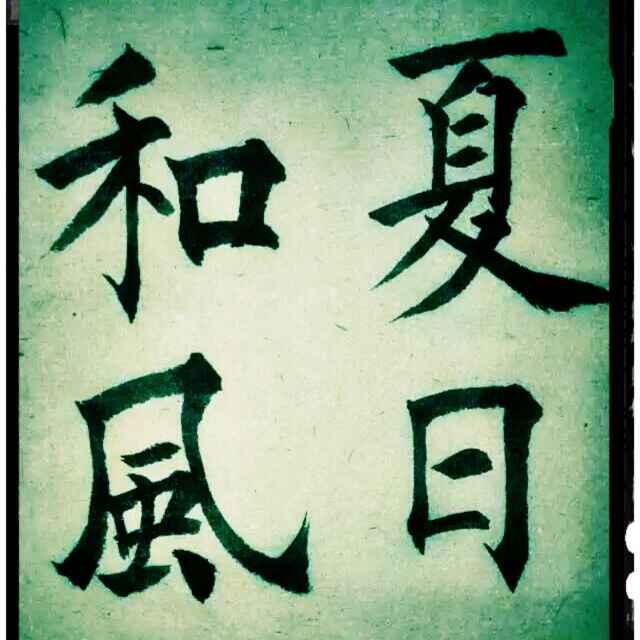 夏日
和風